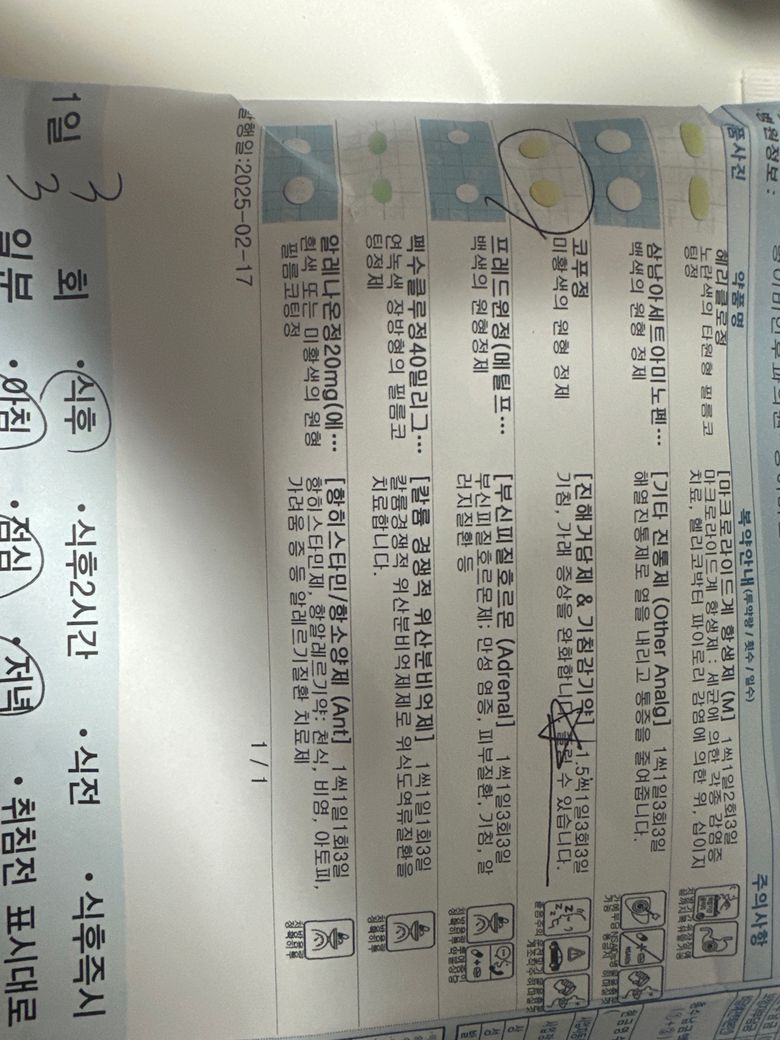 병원정보 :
품사진 약품명 복약안내 (투약량 / 횟수 / 일수) 주의사항
헤리클로정
노란색의 타원형 필름코
팅정
[마크로라이드계 항생제 (M] 1씩1일2회3일
마크로라이드계 항생제 : 세균에 의한 각종 감염증
치료, 헬리코박터 파이로리 감염에 의한 위, 십이지
삼남아세트아미노펜…
백색의 원형 정제
[기타 진통제 (Other Analg] 1씩1일3회3일
해열진통제로 열을 내리고 통증을 줄여준니다.
코푸정
미황색의 원형 정제
[진해거담제 & 기침감기약] 1.5씩1일3회3일
기침, 가래 증상을 완화합니다 졸릴 수 있습니다.
프레드원정(메틸프…
백색의 원형정제
[부신피질호르몬 (Adrenal] 1씩1일3회3일
부신피질호르몬제: 만성 염증, 피부질환, 기침, 알
러지질환 등
펙수클루정40밀리그…
연녹색 장방형의 필름코
팅정제
[칼륨 경쟁적 위산분비억제] 1씩1일1회3일
칼륨경쟁적 위산분비억제제로 위식도역류질환을
치료합니다.
알레나온정20mg(에…
흰색 또는 미황색의 원형
필름 코팅정
[항히스타민/항소양제 (Ant] 1씩1일1회3일
항히스타민제, 항알레르기약: 천식, 비염, 아토피,
가려움 증 등 알레르기질환 치료제
발행일:2025-02-17
1 / 1
1일 3 회 •식후 •식후2시간 •식전 •식후즉시
3 일분 •아침 •점심 •저녁 •취침전 표시대로